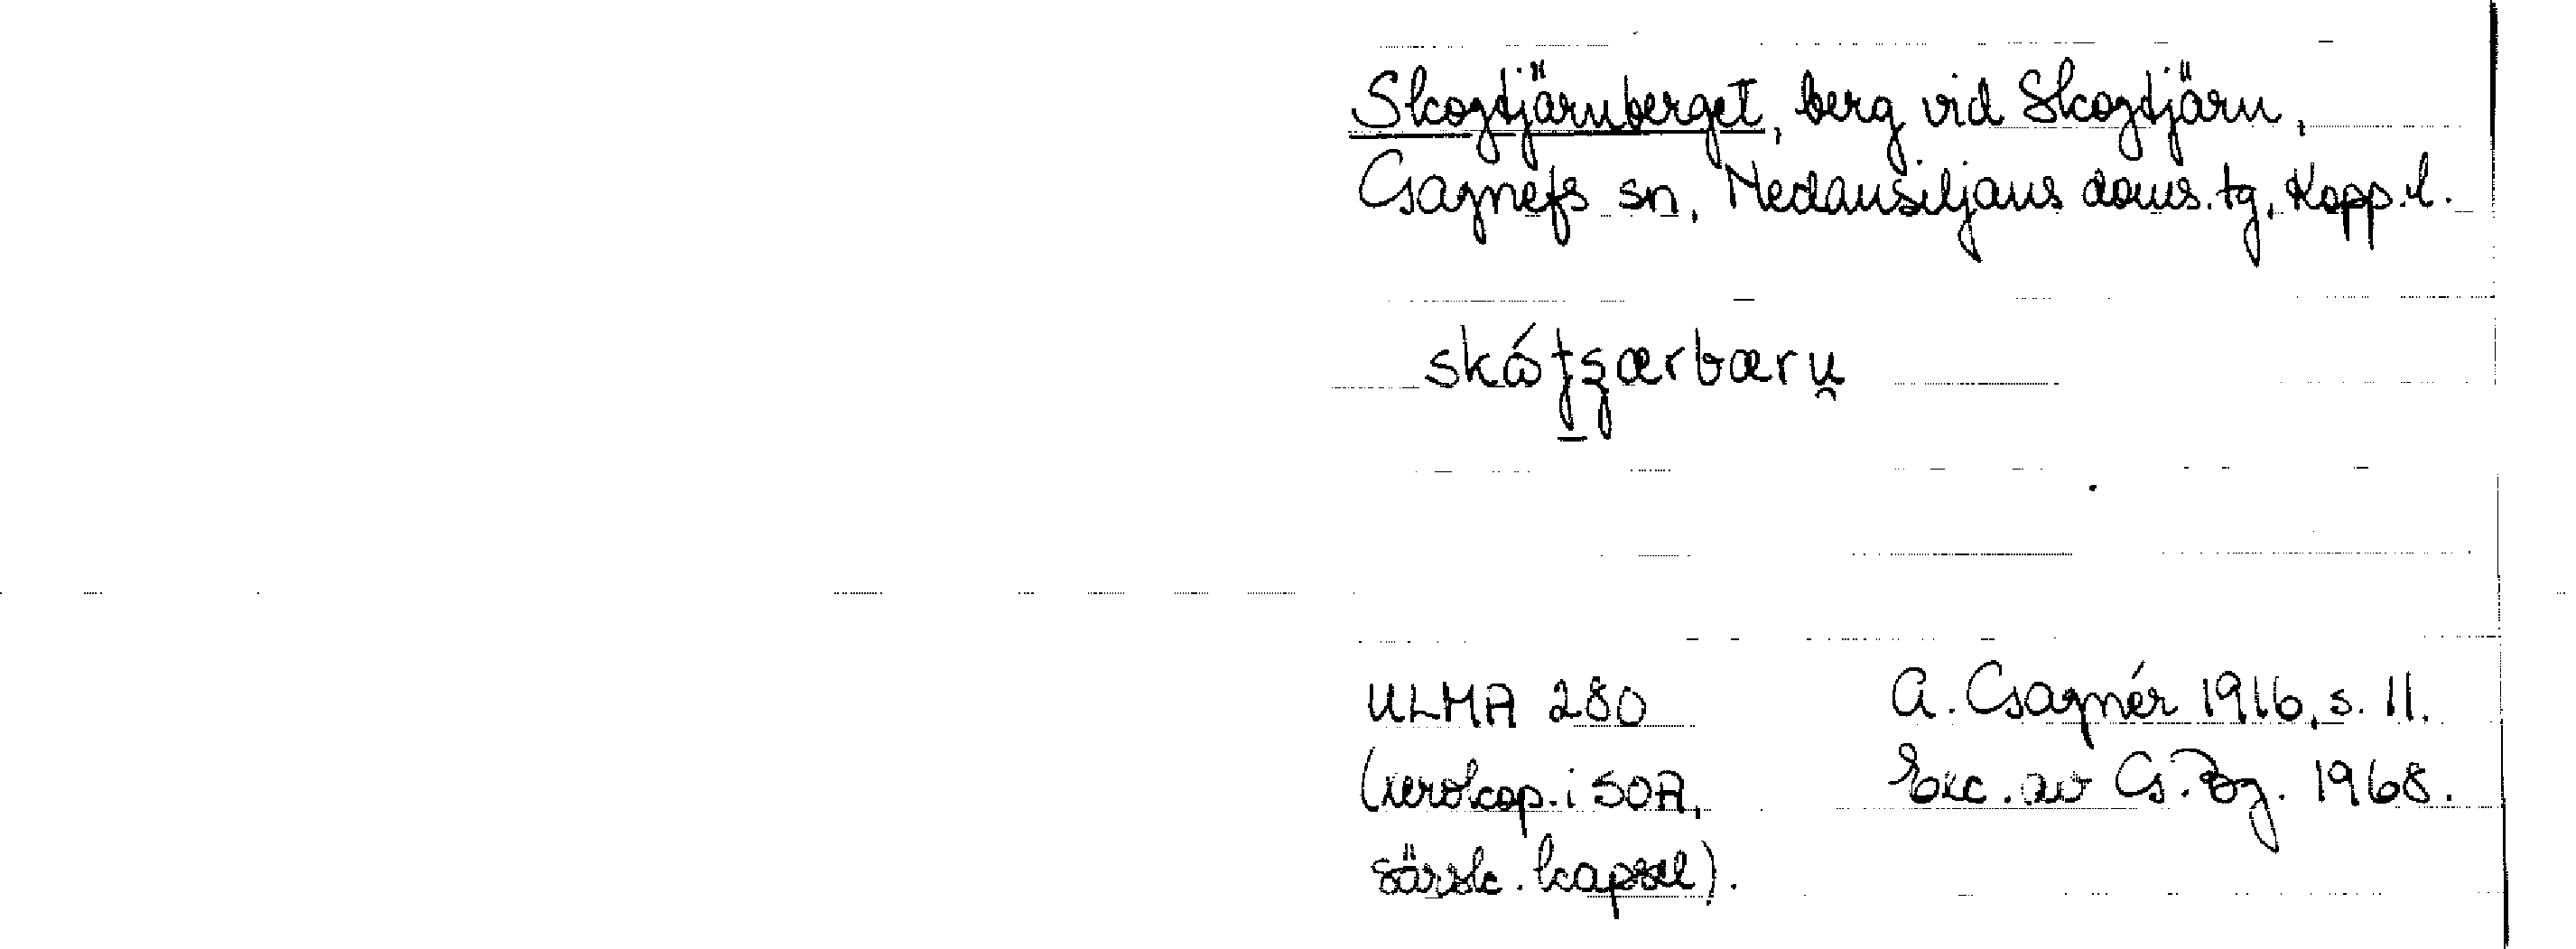 Skogtjärnberget, berg vid Skogtjärn,
Gagnefs sn, Nedansiljans doms. tg, Kopp. l.
ULMA 280
(xerokop. i SOA,
särsk. kapsel).
G. Gagnér 1916, s. 11.
Exc. av G. Bg. 1968.